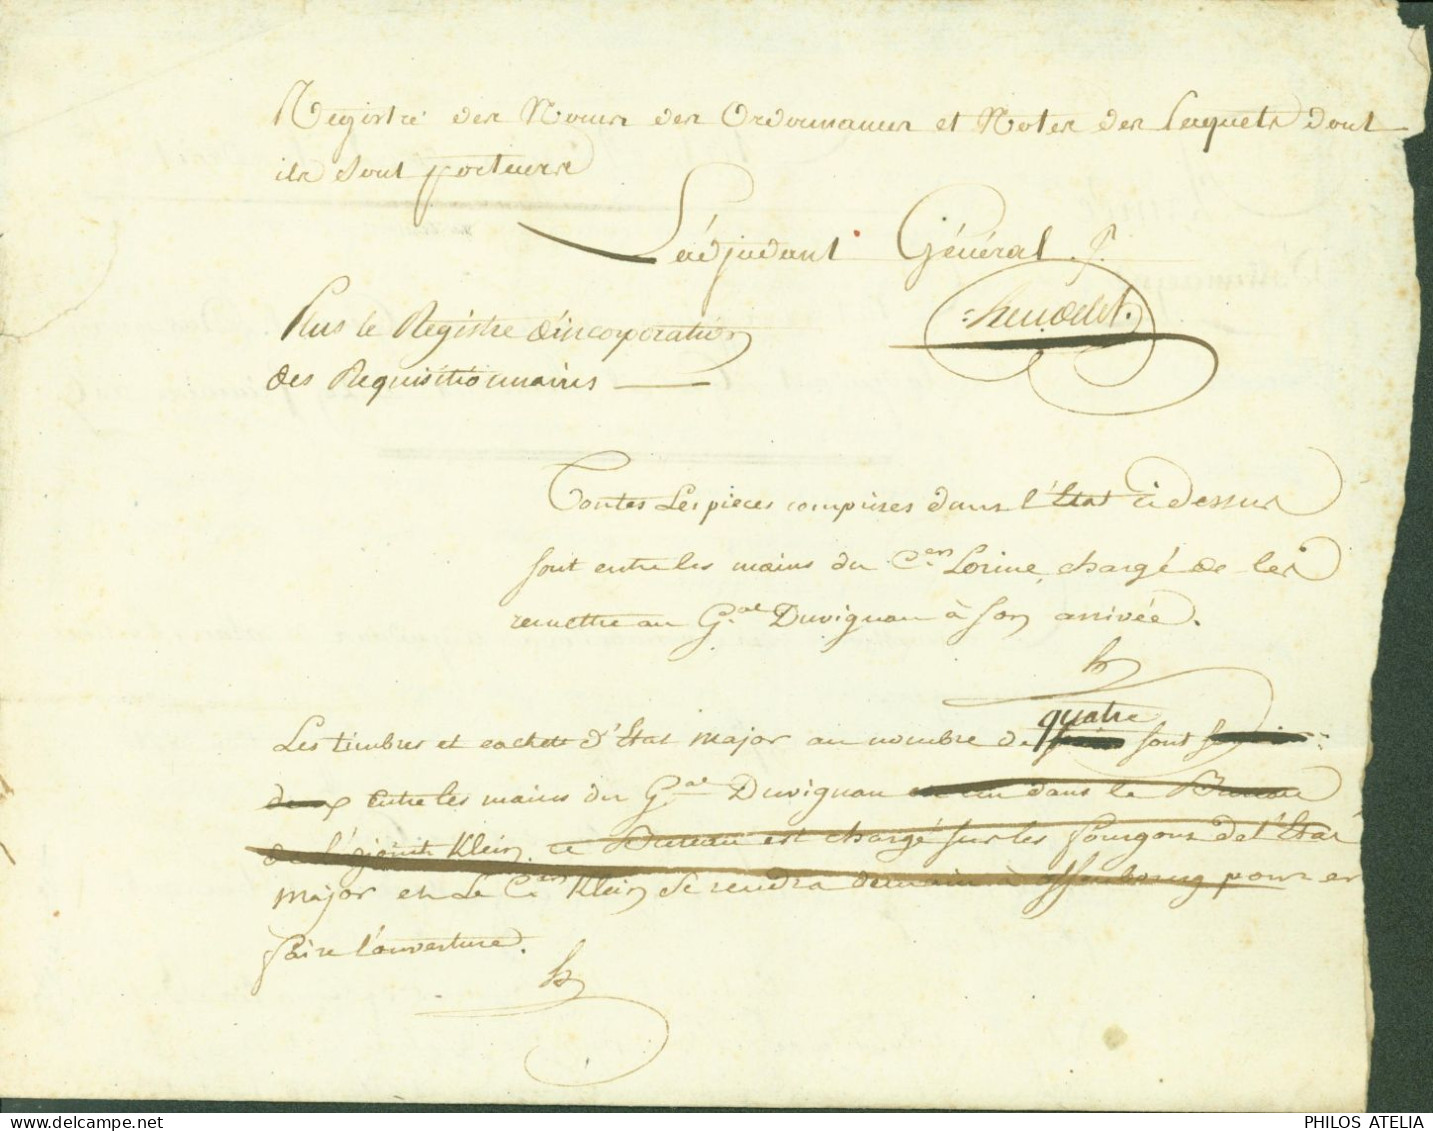 Registre des Noms des Ordonnances et Notes des paquets dont
ils sont porteurs
L'adjudant Général f.
Plus le Registre d'incorporation
des Requisitionnaires
Toutes Les pieces comprises dans l'Etat ci dessus
sont entre les mains du C.en Lorine, chargé de les
remettre au G.al Duvignau à son arrivée.
quatre
Les timbres et cachett d'Etat major au nombre de sont
entre les mains du G.al Duvignau un dans le Bureau
de l'adjoint Klein, ce Bureau est chargé sur les fourgons de l'Etat
major et Le C.en Klein se rendra demain à pour en
faire l'ouverture.
PHILOS ATELIA